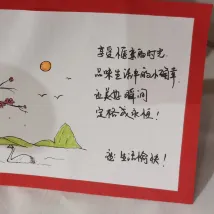 享受惬意的时光
品味生活中的小确幸
让美好瞬间
定格成永恒！
祝 生活愉快！